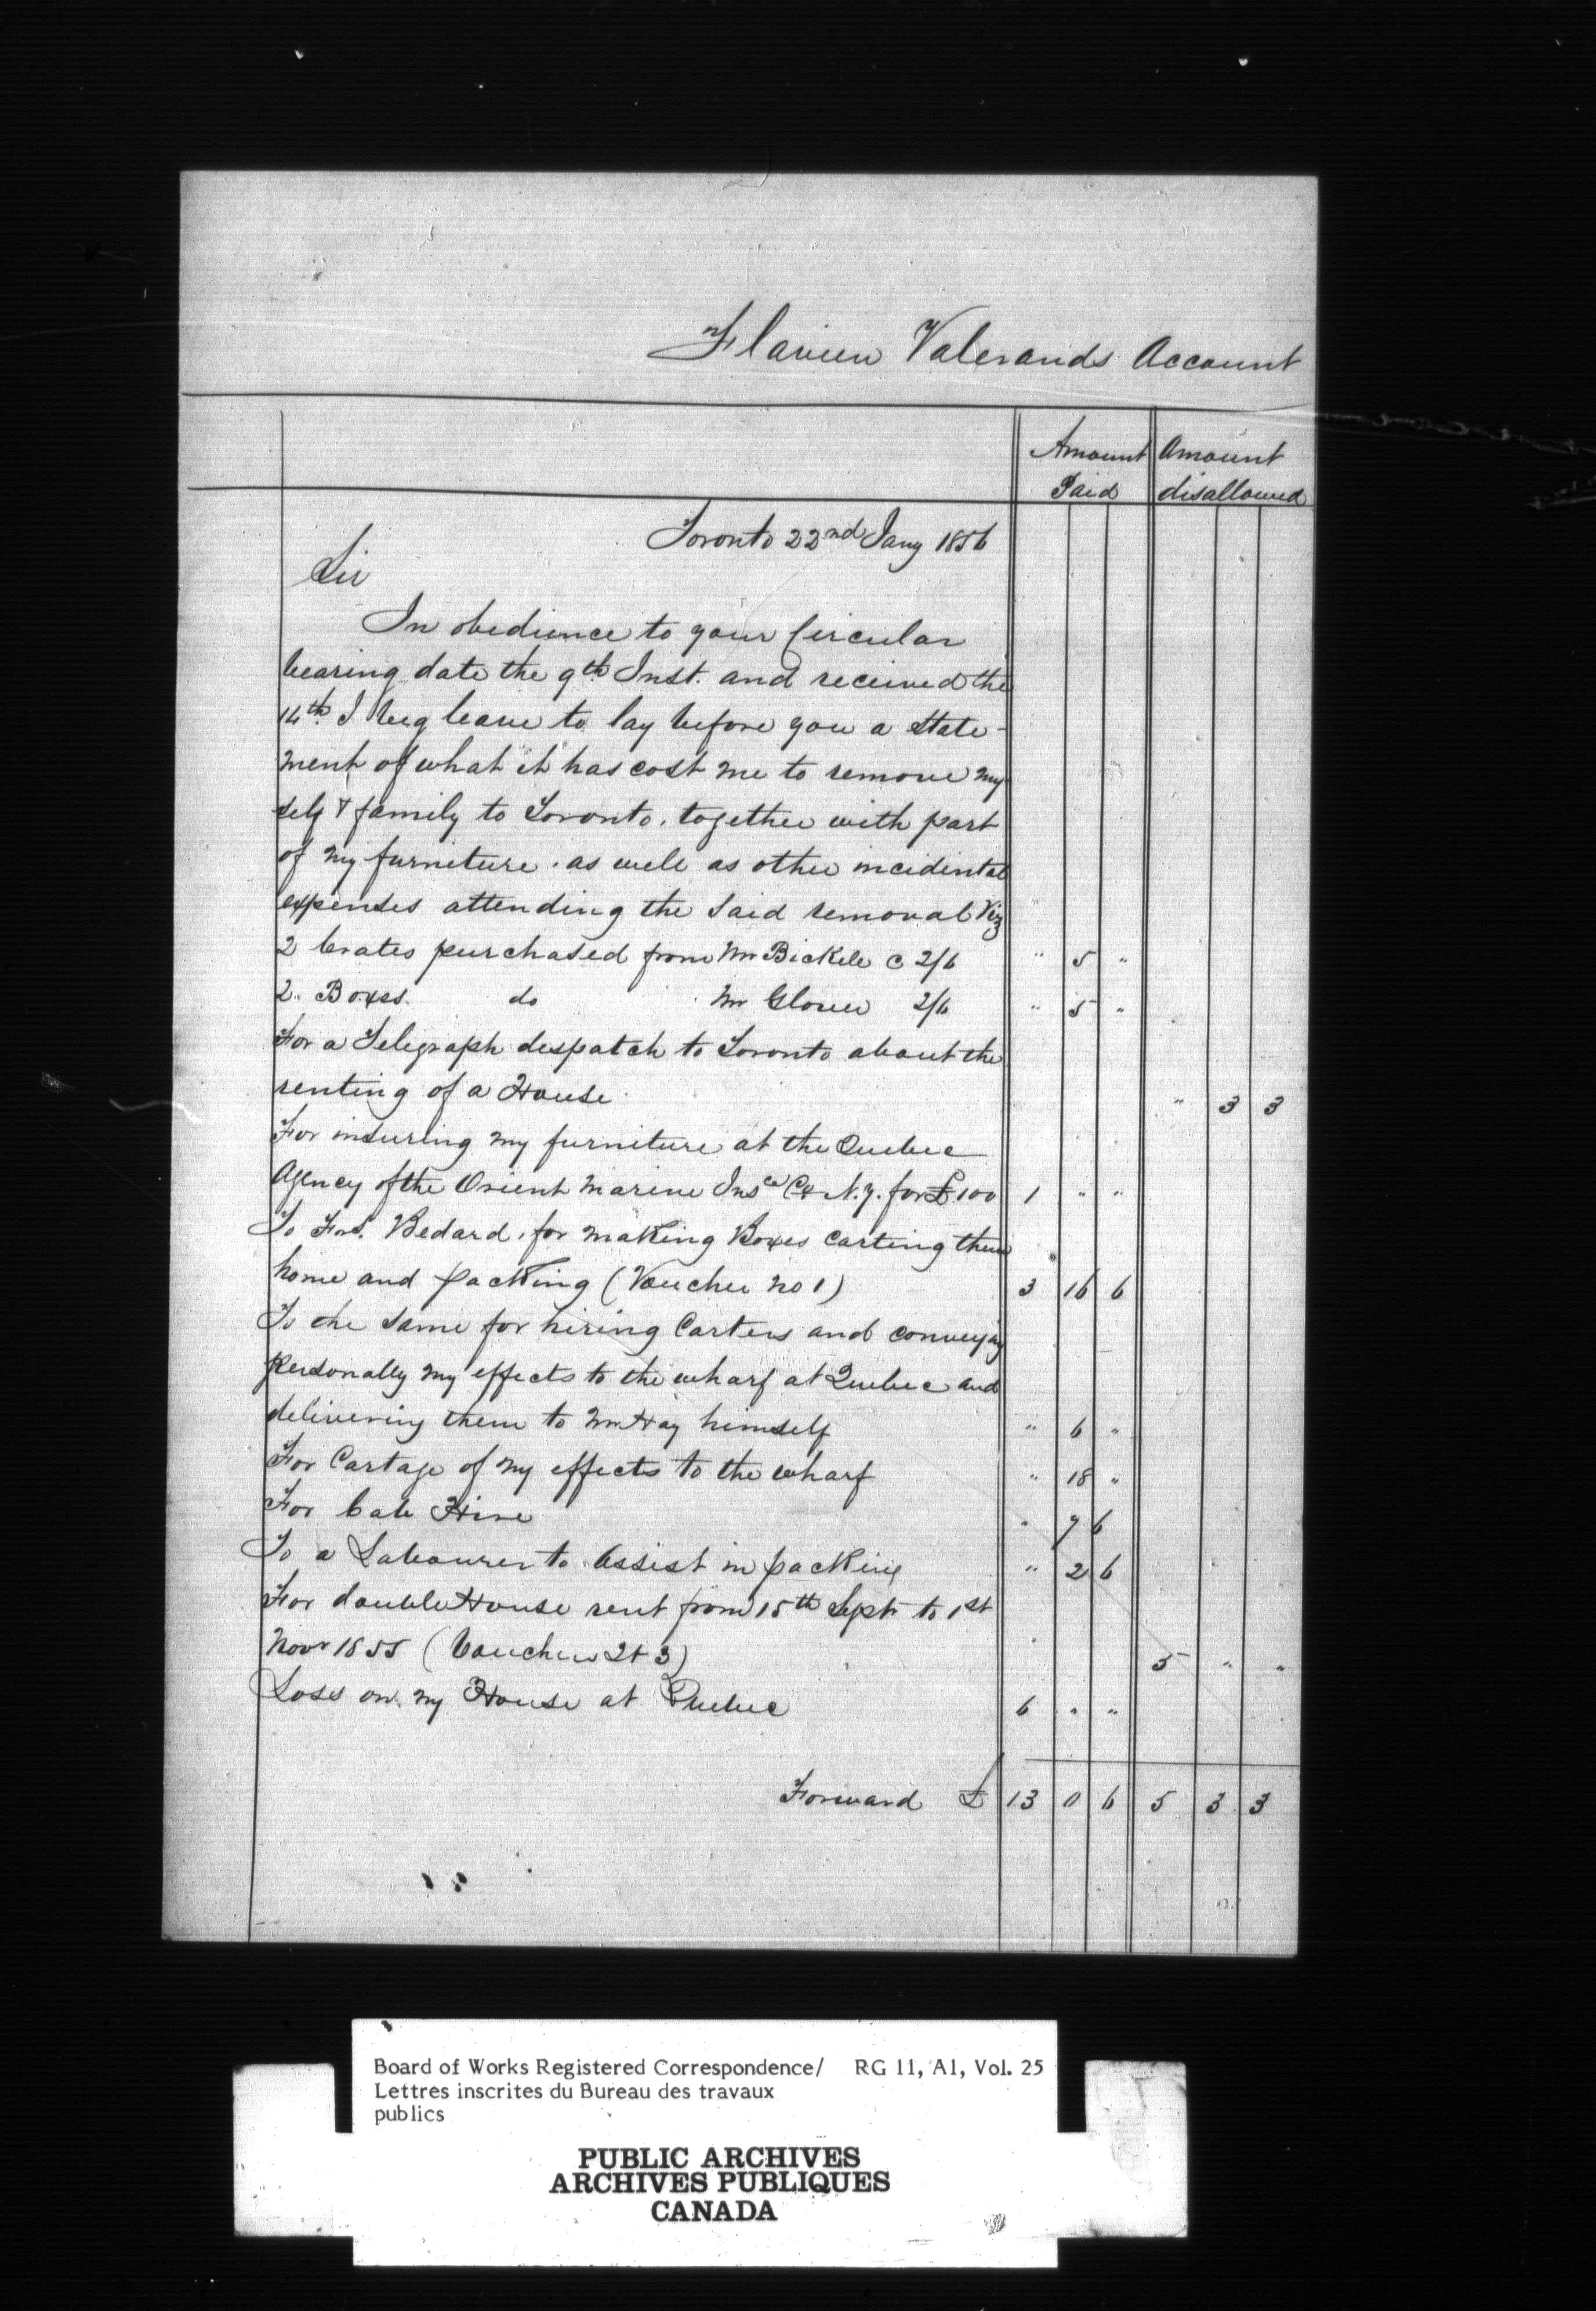 Flavien Valerands Account
Amount Paid Amount disallowed
Toronto 22nd Jany 1856
Sir
In obedience to your Circular
bearing date the 9th Inst. and received the
14th I beg leave to lay before you a state-
ment of what it has cost me to remove my
self & family to Toronto, together with part
of my furniture, as well as other incidental
expenses attending the said removal Viz
2 Crates purchased from Mr Bickele @ 2/6 " 5 "
2. Boxes do Mr Glover 2/6 " 5 "
For a Telegraph despatch to Toronto about the
renting of a House " 3 3
For insuring my furniture at the Quebec
Agency of the Orient Marine Insce Co N.Y. for £100 1 " "
To Frs. Bedard, for making Boxes carting them
home and packing (Voucher no 1) 3 16 6
To the same for hiring Carters and conveying
personally my effects to the wharf at Quebec and
delivering them to Mr Hay himself " 6 "
For Cartage of my effects to the wharf " 18 "
For Cab Hire " 7 6
To a Labourer to assist in packing " 2 6
For double House rent from 15th Sept to 1st
Novr 1855 (Voucher 2 & 3) 5 " "
Loss on my House at Quebec 6 " "
Forward £ 13 0 6 5 3 3
Board of Works Registered Correspondence/ RG 11, A1, Vol. 25
Lettres inscrites du Bureau des travaux
publics
PUBLIC ARCHIVES
ARCHIVES PUBLIQUES
CANADA